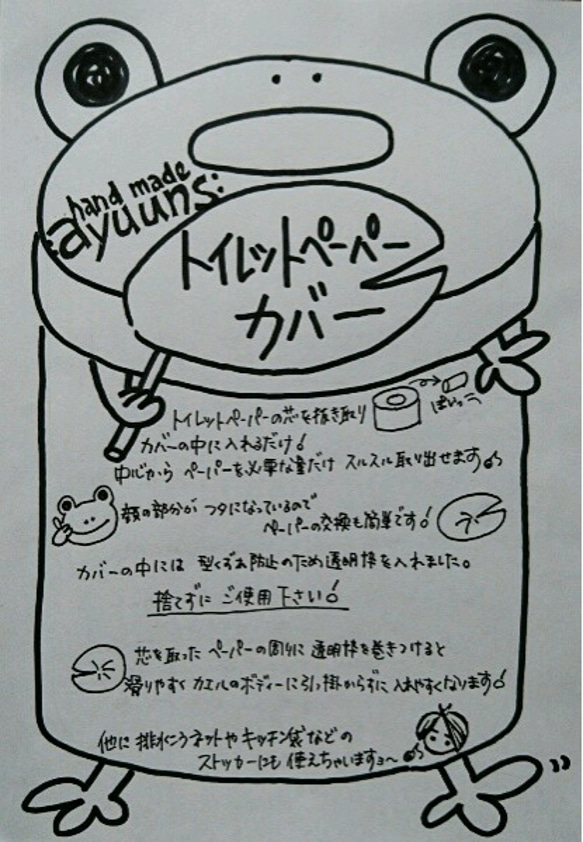 hand made
ayuuns:
トイレットペーパー
カバー
トイレットペーパーの芯を抜き取り
ぽいっ
カバーの中に入れるだけ!
中心から ペーパーを必要な量だけ スルスル取り出せます♪
顔の部分が フタになっているので
ペーパーの交換も簡単です!
カバーの中には 型くずれ防止のため透明枠を入れました。
捨てずに ご使用下さい!
芯を取った ペーパーの周りに 透明枠を巻きつけると
滑りやすく カエルのボディーに引っ掛からずに 入れやすくなります!
他に 排水こうネットや キッチン袋などの
ストッカーにも 使えちゃいますョ〜